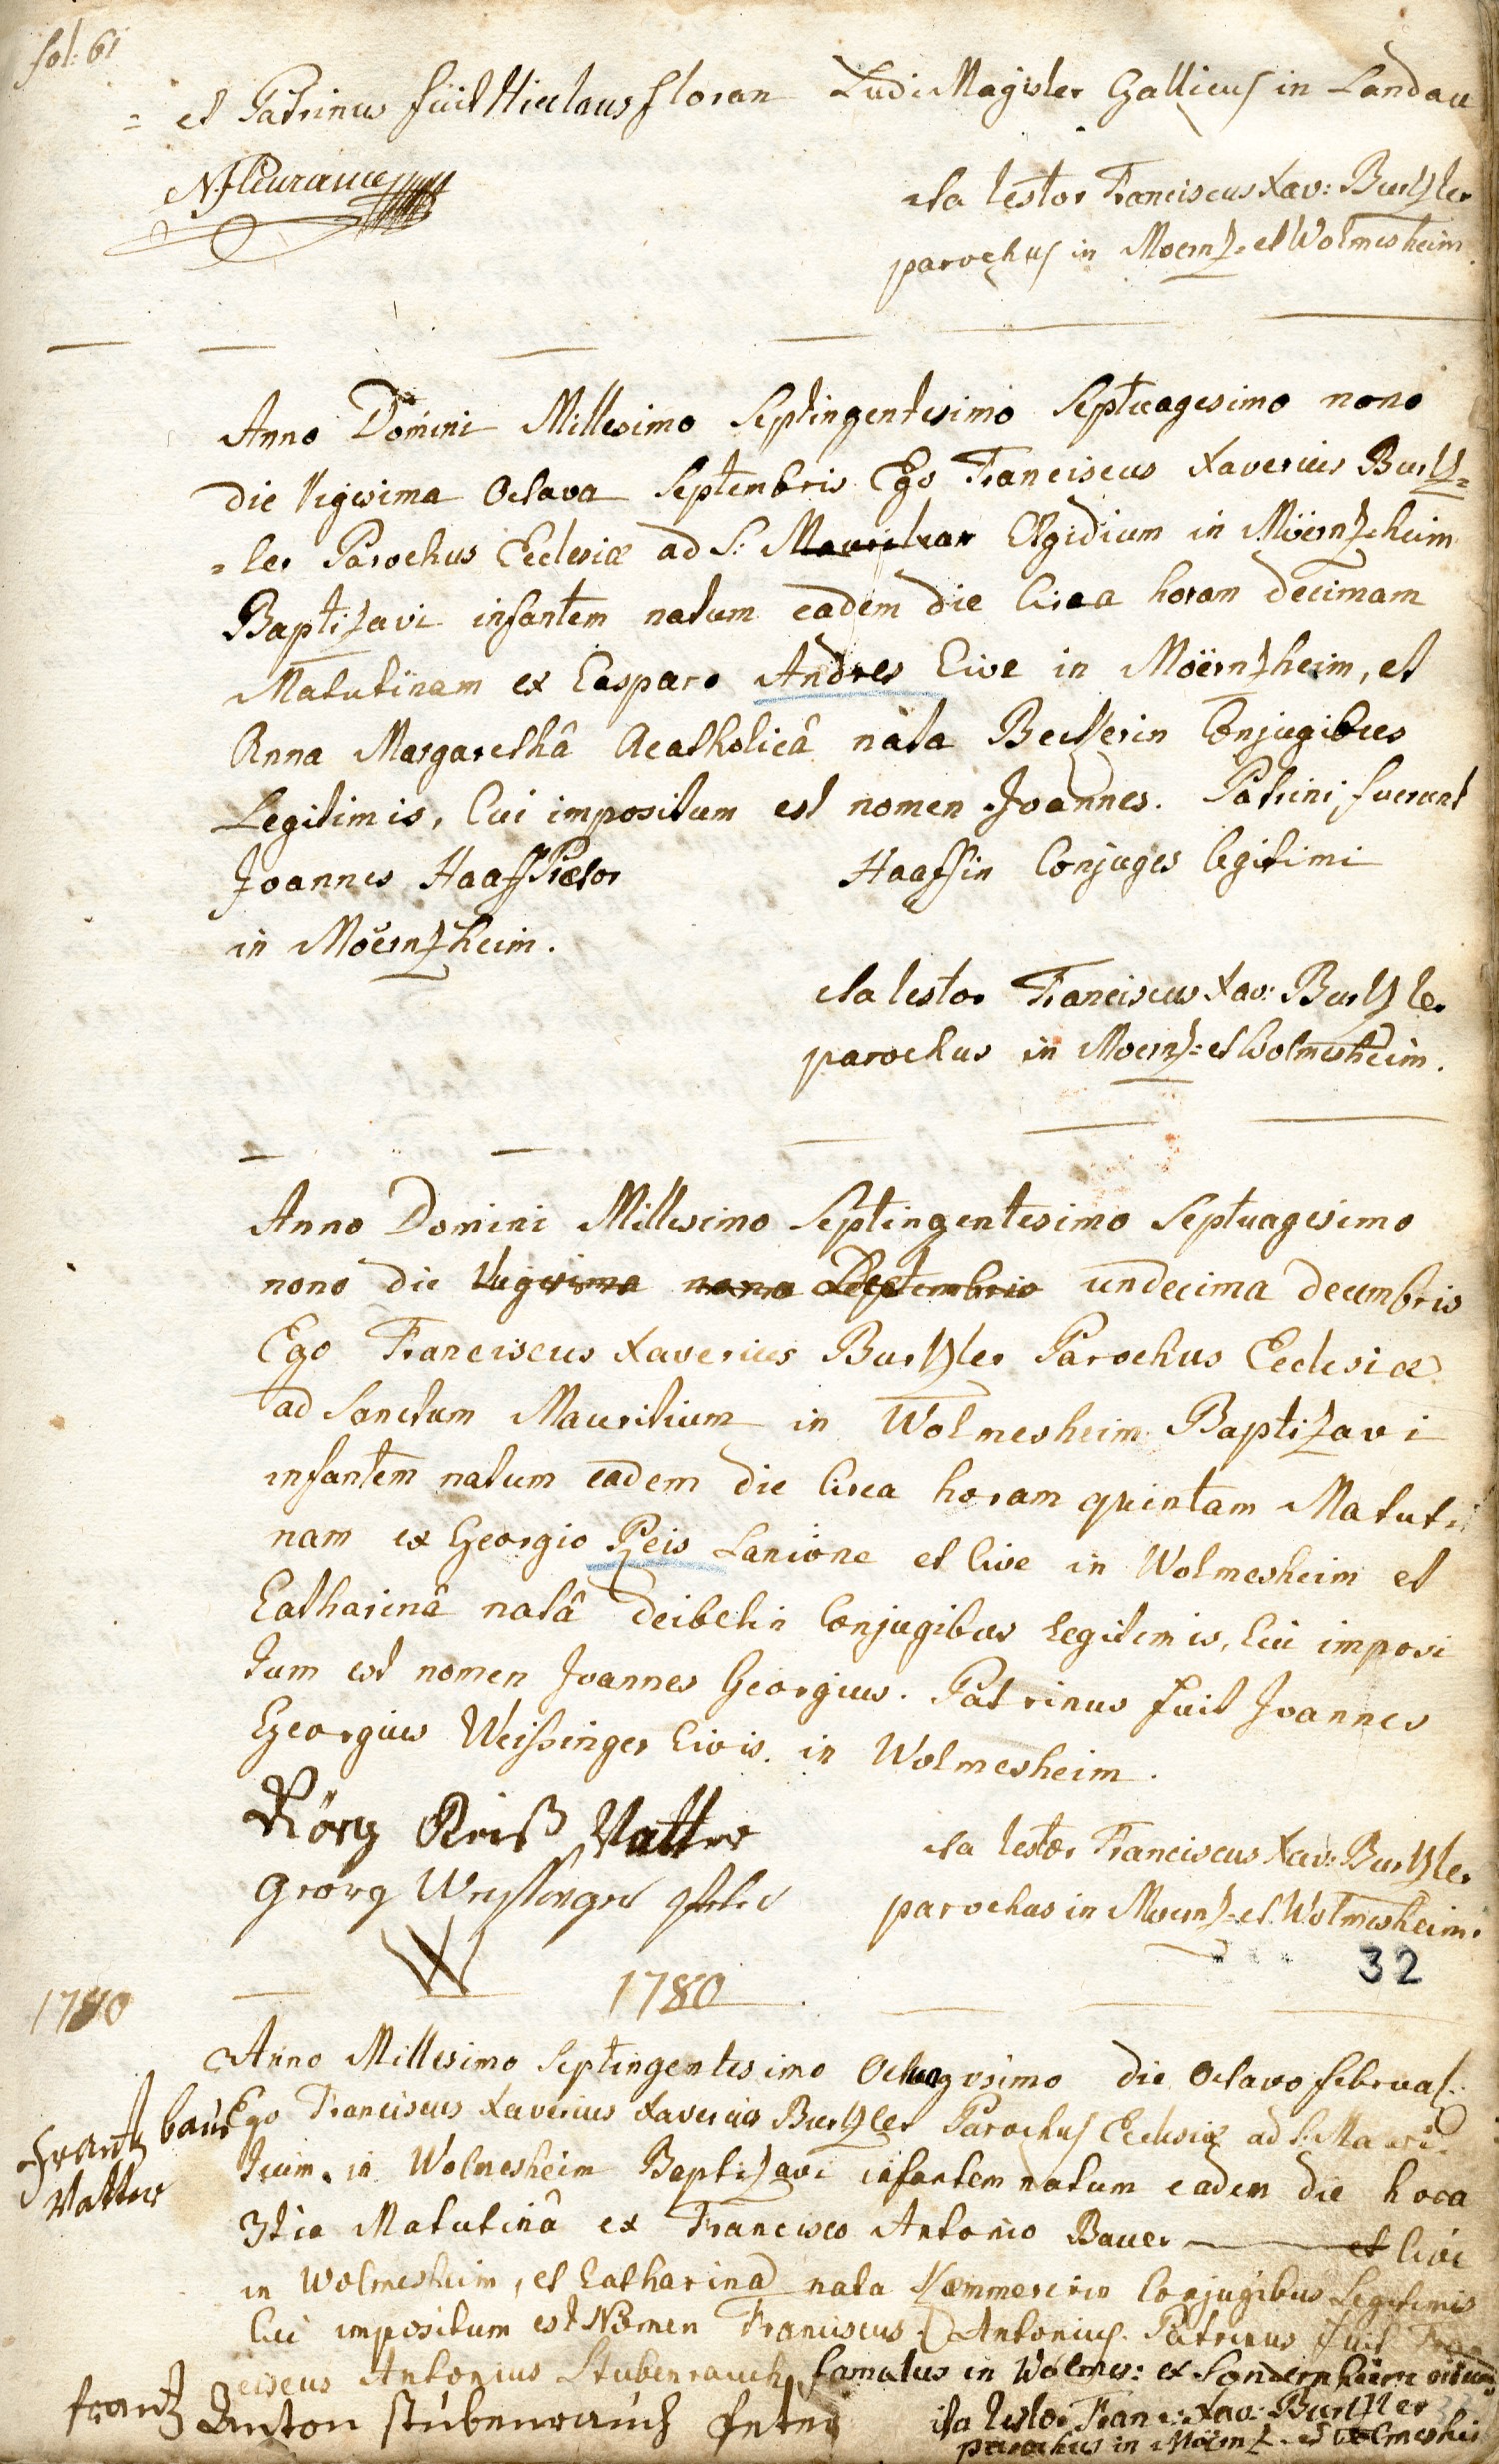 fol: 61
= et Patrinus fuit Niclaus floran Ludi Magister Gallicus in Landau
N. fleurance
Ita testor Franciscus Xav: Burtzler
parochus in Moernz- et Wolmesheim.
Anno Domini Millesimo Septingentesimo Septuagesimo nono
die Vigesima Octava Septembris Ego Franciscus Xaverius Burtz=
=ler Parochus Ecclesiæ ad S: Ægidium in Möernzheim
Baptizavi infantem natum eadem die Circa horam decimam
Matutinam ex Casparo Andres Cive in Möernzheim, et
Anna Margarethâ Acatholicâ nata Conjugibus
Legitimis, Cui impositum est nomen Joannes. Patrini fuerunt
Joannes Haaß Prætor Haaßin Conjuges legitimi
in Möernzheim.
Ita testor Franciscus Xav: Burtzler
parochus in Moernz= et Wolmesheim.
Anno Domini Millesimo Septingentesimo Septuagesimo
nono die Vigesima nona Septembris undecima decembris
Ego Franciscus Xaverius Burtzler Parochus Ecclesiæ
ad Sanctum Mauritium in Wolmesheim Baptizavi
infantem natum eadem die Circa horam quintam Matuti
nam ex Georgio Reis Lanione et Cive in Wolmesheim et
Catharinâ natâ deibelin Conjugibus Legitimis, Cui imposi
tum est nomen Joannes Georgius. Patrinus fuit Joannes
Georgius Weissinger Civis in Wolmesheim.
Görg Reiß Vatter
Georg
Ita testor Franciscus Xav: Burtzler
parochus in Moernz- et Wolmesheim.
W
32
1780
1780
Anno Millesimo Septingentesimo Octuagesimo die Octavo februar:
Ego Franciscus Xaverius Xaverius Burtzler Parochus Ecclesiæ ad S: Mauri
frantz baur
Vatter
tium in Wolmesheim Baptizavi infantem natum eadem die hora
3tia Matutinâ ex Francisco Antonio Bauer et Cive
in Wolmesheim, et Catharina nata Kæmmererin Conjugibus Legitimis
Cui impositum est Nomen Franciscus Antonius. Patrinus fuit Fran
ciscus Antonius Stubenrauch famulus in Wolmes: ex Sondernheim
frantz Anton stubenrauch
ita testor Franc: Xav: Burtzler
parochus in Möernz- et Wolmeshei